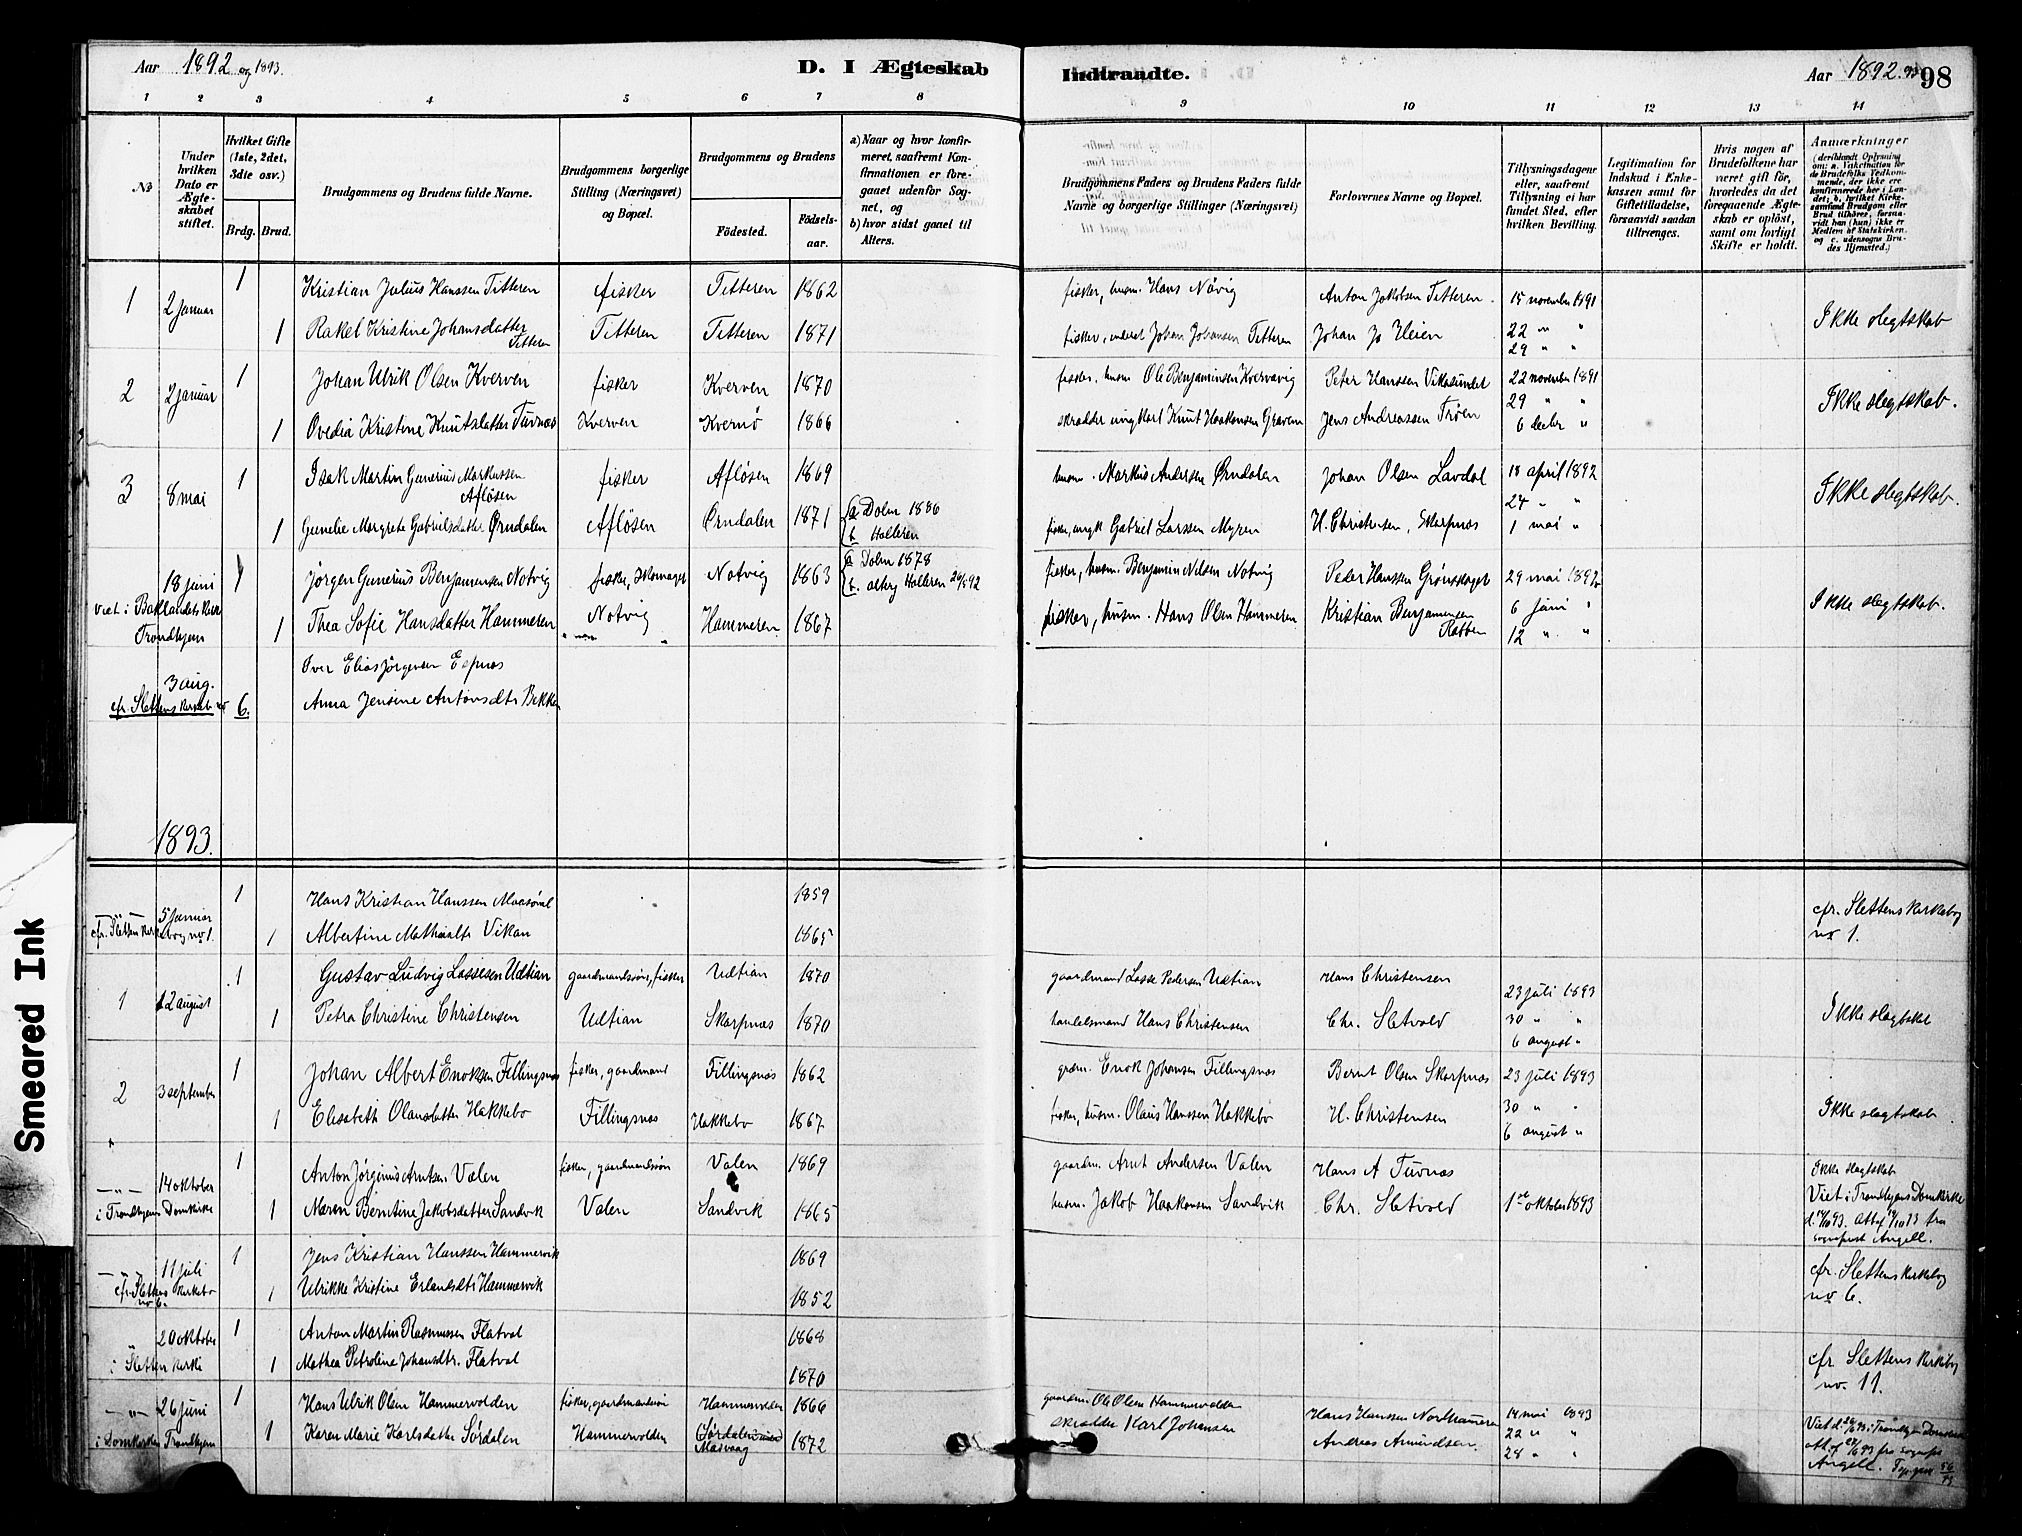 Aar 1892 og 1893.
D. I Ægteskab
Indtraadte.
Aar 1892. 93
98
1 2 3 4 5 6 7 8 9 10 11 12 13 14
No
Under hvilken Dato er Ægteskabet stiftet.
Hvilket Gifte (1ste, 2det, 3die osv.)
Brdg. Brud.
Brudgommens og Brudens fulde Navne.
Brudgommens borgerlige Stilling (Næringsvei) og Bopæl.
Brudgommens og Brudens
Fødested. Fødselsaar.
a) Naar og hvor konfirmeret, saafremt Konfirmationen er foregaaet udenfor Sognet, og
b) hvor sidst gaaet til Alters.
Brudgommens Faders og Brudens Faders fulde Navne og borgerlige Stillinger (Næringsvei)
Forlovernes Navne og Bopæl.
Tillysningsdagene eller, saafremt Tillysning ei har fundet Sted, efter hvilken Bevilling.
Legitimation for Indskud i Enkekassen samt for Giftetilladelse, forsaavidt saadan tiltrænges.
Hvis nogen af Brudefolkene har været gift før, hvorledes da det foregaaende Ægteskab er opløst, samt om lovligt Skifte er holdt.
Anmærkninger
(deriblandt Oplysning om: a. Vakcination for de Brudefolks Vedkommende, der ikke ere konfirmerede her i Landet; b. hvilket Kirkesamfund Brudgom eller Brud tilhører, forsaavidt han (hun) ikke er Medlem af Statskirken, og c. udensogns Brudes Hjemsted.)
1 2 januar 1 Kristian Julius Hanssen Titteren fisker Titteren 1862 fisker, husm. Hans Növig Anton Jakobsen Titteren 15 november 1891 Ikke slegtskab
1 Rakel Kristine Johansdatter Titteren Titteren Titteren 1871 fisker, Johan Johansen Titteren Johan Jo Heien 22 " "
29 " "
2 2 januar 1 Johan Ulrik Olsen Kverven fisker Kverven 1870 fisker, husm Ole Benjaminsen Kvervavig Peter Hanssen Viksundet 22 november 1891 Ikke slegtskab.
29 " "
1 Ovedia Kristine Knutsdatter Tuvnæs Kverven Kvernö 1866 skrædder ungkarl Knut Haakonsen Graven Jens Andreassen Tröen 6 decbr "
3 8 mai 1 Isak Martin Gunerius Markussen Aflösen fisker Aflösen 1869 husm. Markus Andersen Ørndalen Johan Olsen Lavdal 18 april 1892 Ikke slegtskab.
24 " "
1 Gunelie Margrete Gabrielsdatter Ørndalen Aflösen Ørndalen 1871 a Dolm 1886 b Halleren fisker, ungk Gabriel Larssen Myren H. Christensen, Skarpnæs 1 mai "
18 juni 1 Jørgen Gunerius Benjaminsen Notvig fisker, Skomager Notvig 1863 a Dolm 1878 b. Halleren fisker, husm. Benjamin Nilsen Notvig Peder Hanssen Grönskaget 29 mai 1892 Ikke slegtskab.
viet i Baklandets Kirke Trondhjem
1 Thea Sofie Hansdatter Hammeren Notvig Hammeren 1867 fisker, husm. Hans Olsen Hammeren Kristian Benjaminsen 6 juni "
12 " "
3 aug. Iver Elias Jørgensen Espnæs
cfr. Slettens Kirkeb no 6. Anna Jensine Antonsdtr Bekken
1893.
5 januar 1 Hans Kristian Hanssen Maasøval 1859 cfr. Slettens Kirkebog no 1.
cfr. Sletten Kirkebog no 1. 1 Albertine Vikan 1865
1 12 august 1 Gustav Ludvig Lassesen Udtian gaardmandssøn, fisker Udtian 1870 gaardmand Lasse Pedersen Udtian Hans Christensen 23 juli 1893 Ikke slegtskab
1 Petra Christine Christensen Udtian Skarpnæs 1870 handelsmand Hans Christensen Chr. Sletvold 30 " "
6 august "
2 3 september 1 Johan Albert Enoksen Fillingsnæs fisker, gaardmand Fillingsnæs 1862 grdm. Enok Johansen Fillingsnæs Bernt Olsen Skarpnæs 23 juli 1893 Ikke slegtskab
1 Elisabeth Olausdatter Hakkebo Fillingsnæs Hakkebo 1867 fisker, husm. Olaus Hanssen Hakkebo H. Christensen 30 " "
6 august "
— " — 14 oktober 1 Anton Jörginus Arntsen Valen fisker, gaardmandssøn Valen 1869 gaardm. Arnt Andersen Valen Hans A Tuvnæs Ikke slegtskab
i Trondhjems Domkirke 1 Maren Berntine Jakobsdatter Sandvik Valen Sandvik 1865 husm. Jakob Haakonsen Sandvik Chr. Sletvold 1ste oktober 1893 Viet i Trondhjems Domkirke d. 14/10 93. fra sognepræst Angell.
— " — 11 juli 1 Jens Kristian Hanssen Hammervik 1869 cfr. Slettens Kirkebog no 6.
cfr. Slettens Kirkebo no 6. 1 Ulrikke Kristine Erlandsdtr Hammervik 1852
" 20 oktober 1 Anton Martin Rasmussen Flatval 1868 cfr Slettens Kirkebog no. 11.
i Sletten Kirke 1 Mathea Petroline Johansdtr. Flatval 1870
— " — 26 juni 1 Hans Ulrik Olsen Hammervolden fisker, gaardmandssøn Hammervolden 1866 gaardm. Ole Olsen Hammervolden Hans Hanssen 14 mai 1893 Viet d. 26/6 93 i Trondhjem Domkirke
i Domkirken Trondhjem 1 Karen Marie Karlsdatter Sørdalen Hammervolden Mavaag 1872 skrædder Karl Johansen Andreas Amundsen. 22 " " fra sognepr Angell.
28 " "
Smeared Ink